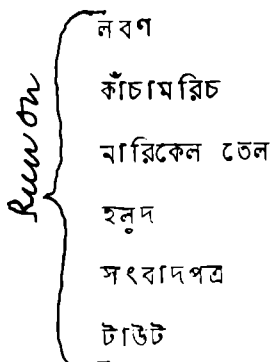 Run on
লবণ
কাঁচামরিচ
নারিকেল তেল
হলুদ
সংবাদপত্র
টাউট